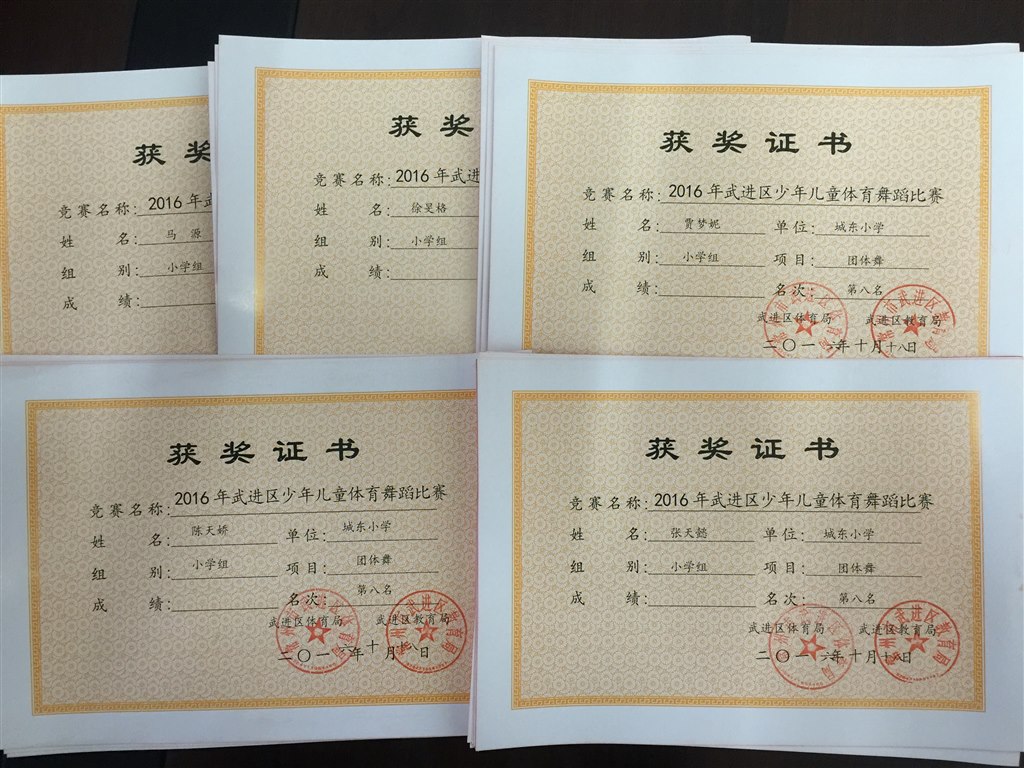 获奖
竞赛名称：2016年武
姓 名：马 源
组 别：小学组
成 绩：
获奖
竞赛名称：2016年武进
姓 名：徐昊格
组 别：小学组
成 绩：
获奖证书
竞赛名称：2016年武进区少年儿童体育舞蹈比赛
姓 名：贾梦妮 单位：城东小学
组 别：小学组 项目：团体舞
成 绩： 名次：第八名
武进区体育局 武进区教育局
二〇一六年十月十八日
获奖证书
竞赛名称：2016年武进区少年儿童体育舞蹈比赛
姓 名：陈天娇 单位：城东小学
组 别：小学组 项目：团体舞
成 绩： 名次：第八名
武进区体育局 武进区教育局
二〇一六年十月十八日
获奖证书
竞赛名称：2016年武进区少年儿童体育舞蹈比赛
姓 名：张天懿 单位：城东小学
组 别：小学组 项目：团体舞
成 绩： 名次：第八名
武进区体育局 武进区教育局
二〇一六年十月十八日